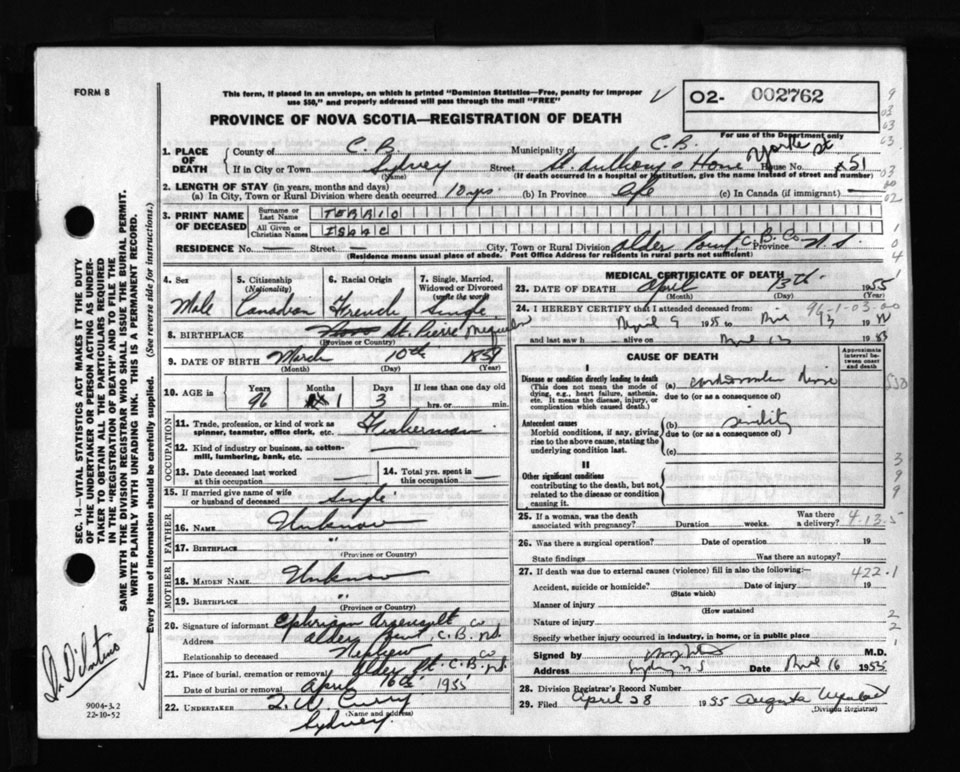 FORM 8
This form, if placed in an envelope, on which is printed "Dominion Statistics—Free, penalty for improper
use $50," and properly addressed will pass through the mail "FREE"
O2- 002762
PROVINCE OF NOVA SCOTIA—REGISTRATION OF DEATH
For use of the Department only
1. PLACE OF DEATH
County of C.B. Municipality of C.B.
If in City or Town Sydney Street St. Anthony's Home Yorke St House No. x51
(Name) (If death occurred in a hospital or institution, give the name instead of street and number)
2. LENGTH OF STAY (in years, months and days)
(a) In City, Town or Rural Division where death occurred 10 yrs (b) In Province Life (c) In Canada (if immigrant) —
3. PRINT NAME OF DECEASED
Surname or Last Name TERRIO
All Given or Christian Names ISAAC
RESIDENCE No. — Street — City, Town or Rural Division Alder Point, C.B. Co Province N.S.
(Residence means usual place of abode. Post Office Address for residents in rural parts not sufficient)
4. Sex Male
5. Citizenship (Nationality) Canadian
6. Racial Origin French
7. Single, Married, Widowed or Divorced (write the word) Single
8. BIRTHPLACE St. Pierre Miquelon
(Province or Country)
9. DATE OF BIRTH March 10th 1859
(Month) (Day) (Year)
10. AGE in Years 96 Months 1 Days 3 If less than one day old
hrs. or min.
OCCUPATION
11. Trade, profession, or kind of work as spinner, teamster, office clerk, etc. Fisherman
12. Kind of industry or business, as cotton-mill, lumbering, bank, etc. —
13. Date deceased last worked at this occupation —
14. Total yrs. spent in this occupation —
15. If married give name of wife or husband of deceased Single
FATHER
16. NAME Unknown
17. BIRTHPLACE "
(Province or Country)
MOTHER
18. MAIDEN NAME Unknown
19. BIRTHPLACE "
(Province or Country)
20. Signature of informant Ephriam Arsenault
Address Alder Point C.B. Co N.S.
Relationship to deceased Nephew
21. Place of burial, cremation or removal Alder Pt. C.B. Co N.S.
Date of burial or removal April 16th 1955
22. UNDERTAKER Curry
(Name and address)
Sydney
MEDICAL CERTIFICATE OF DEATH
23. DATE OF DEATH April 13th 1955
(Month) (Day) (Year)
24. I HEREBY CERTIFY that I attended deceased from:
96-1-03-00
April 9 1955 to 13 19
and last saw h alive on 19
CAUSE OF DEATH
Approximate interval between onset and death
I
Disease or condition directly leading to death (a)
(This does not mean the mode of dying, e.g., heart failure, asthenia, etc. It means the disease, injury, or complication which caused death.)
due to (or as a consequence of)
Antecedent causes (b) senility
Morbid conditions, if any, giving rise to the above cause, stating the underlying condition last.
due to (or as a consequence of)
(c)
II
Other significant conditions contributing to the death, but not related to the disease or condition causing it.
25. If a woman, was the death associated with pregnancy? Duration weeks. Was there a delivery? 4-13-5
26. Was there a surgical operation? Date of operation 19
State findings Was there an autopsy?
27. If death was due to external causes (violence) fill in also the following:— 422-1
Accident, suicide or homicide? Date of injury 19
(State which)
Manner of injury
(How sustained
Nature of injury
Specify whether injury occurred in industry, in home, or in public place
Signed by M.D.
Address Sydney N S Date April 16 1955
28. Division Registrar's Record Number
29. Filed April 28 1955 Augusta
(Division Registrar)
SEC. 14—VITAL STATISTICS ACT MAKES IT THE DUTY
OF THE UNDERTAKER OR PERSON ACTING AS UNDER-
TAKER TO OBTAIN ALL THE PARTICULARS REQUIRED
IN THE "REGISTRATION OF DEATH" AND TO FILE THE
SAME WITH THE DIVISION REGISTRAR WHO SHALL ISSUE THE BURIAL PERMIT.
WRITE PLAINLY WITH UNFADING INK. THIS IS A PERMANENT RECORD.
Every item of information should be carefully supplied. (See reverse side for instructions.)
9004-3.2
22-10-52